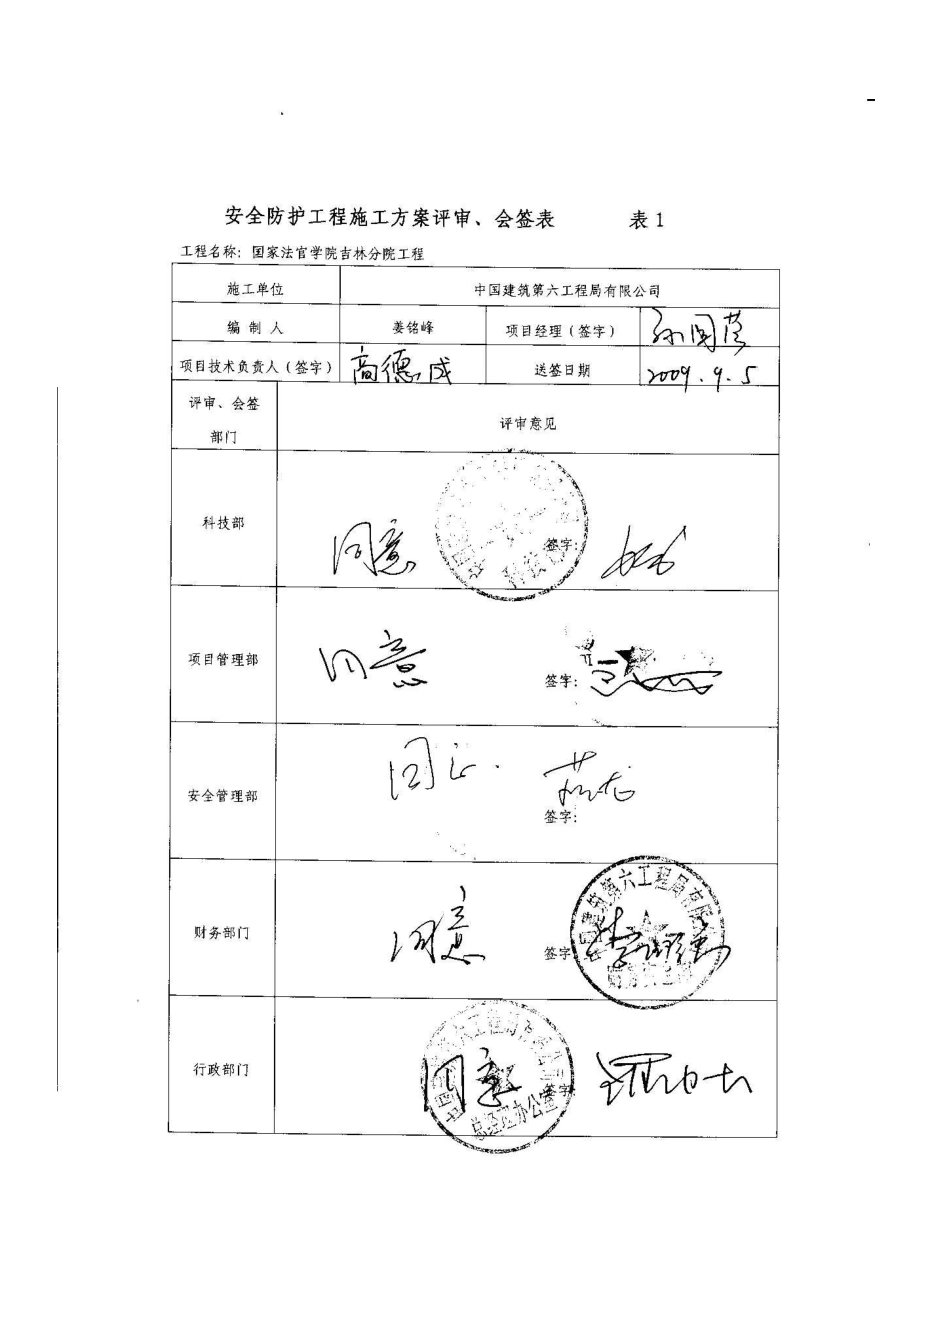 安全防护工程施工方案评审、会签表 表1
工程名称：国家法官学院吉林分院工程
施工单位 中国建筑第六工程局有限公司
编 制 人 姜铭峰 项目经理（签字）
项目技术负责人（签字） 高德成 送签日期 2009.9.5
评审、会签
部门
评审意见
科技部 同意 签字：
项目管理部 同意 签字：
安全管理部 同意. 签字：
财务部门 同意 签字
行政部门 同意 签字
总经理办公室